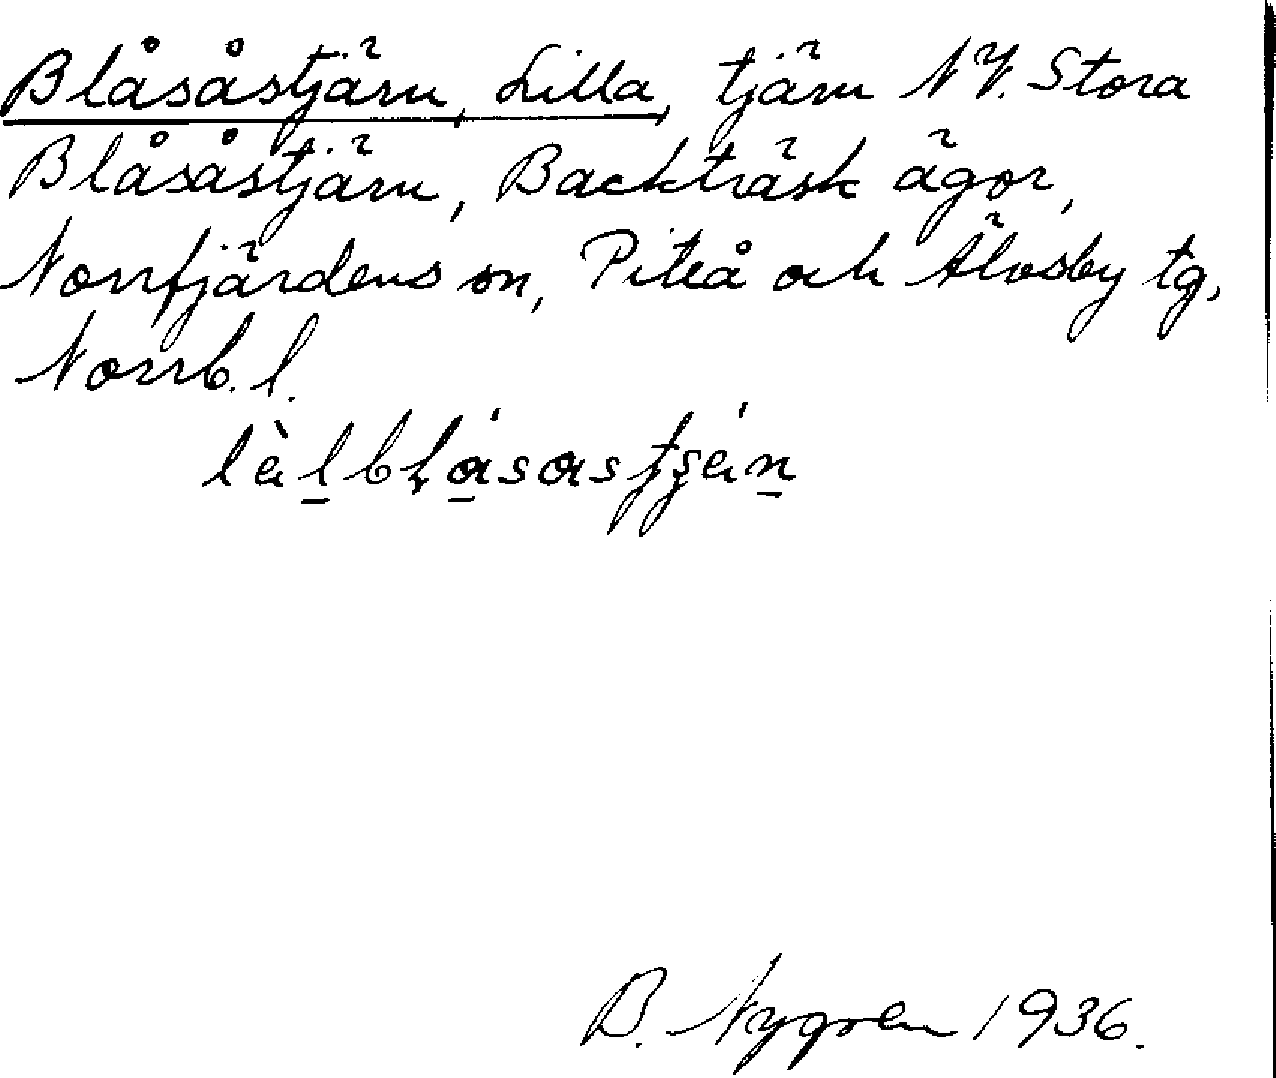 Blåsåstjärn, Lilla, tjärn NV. Stora
Blåsåstjärn, Backträsk ägor,
Norrfjärdens sn, Piteå och Älvsby tg,
Norrb. l.
B. Nygren 1936.